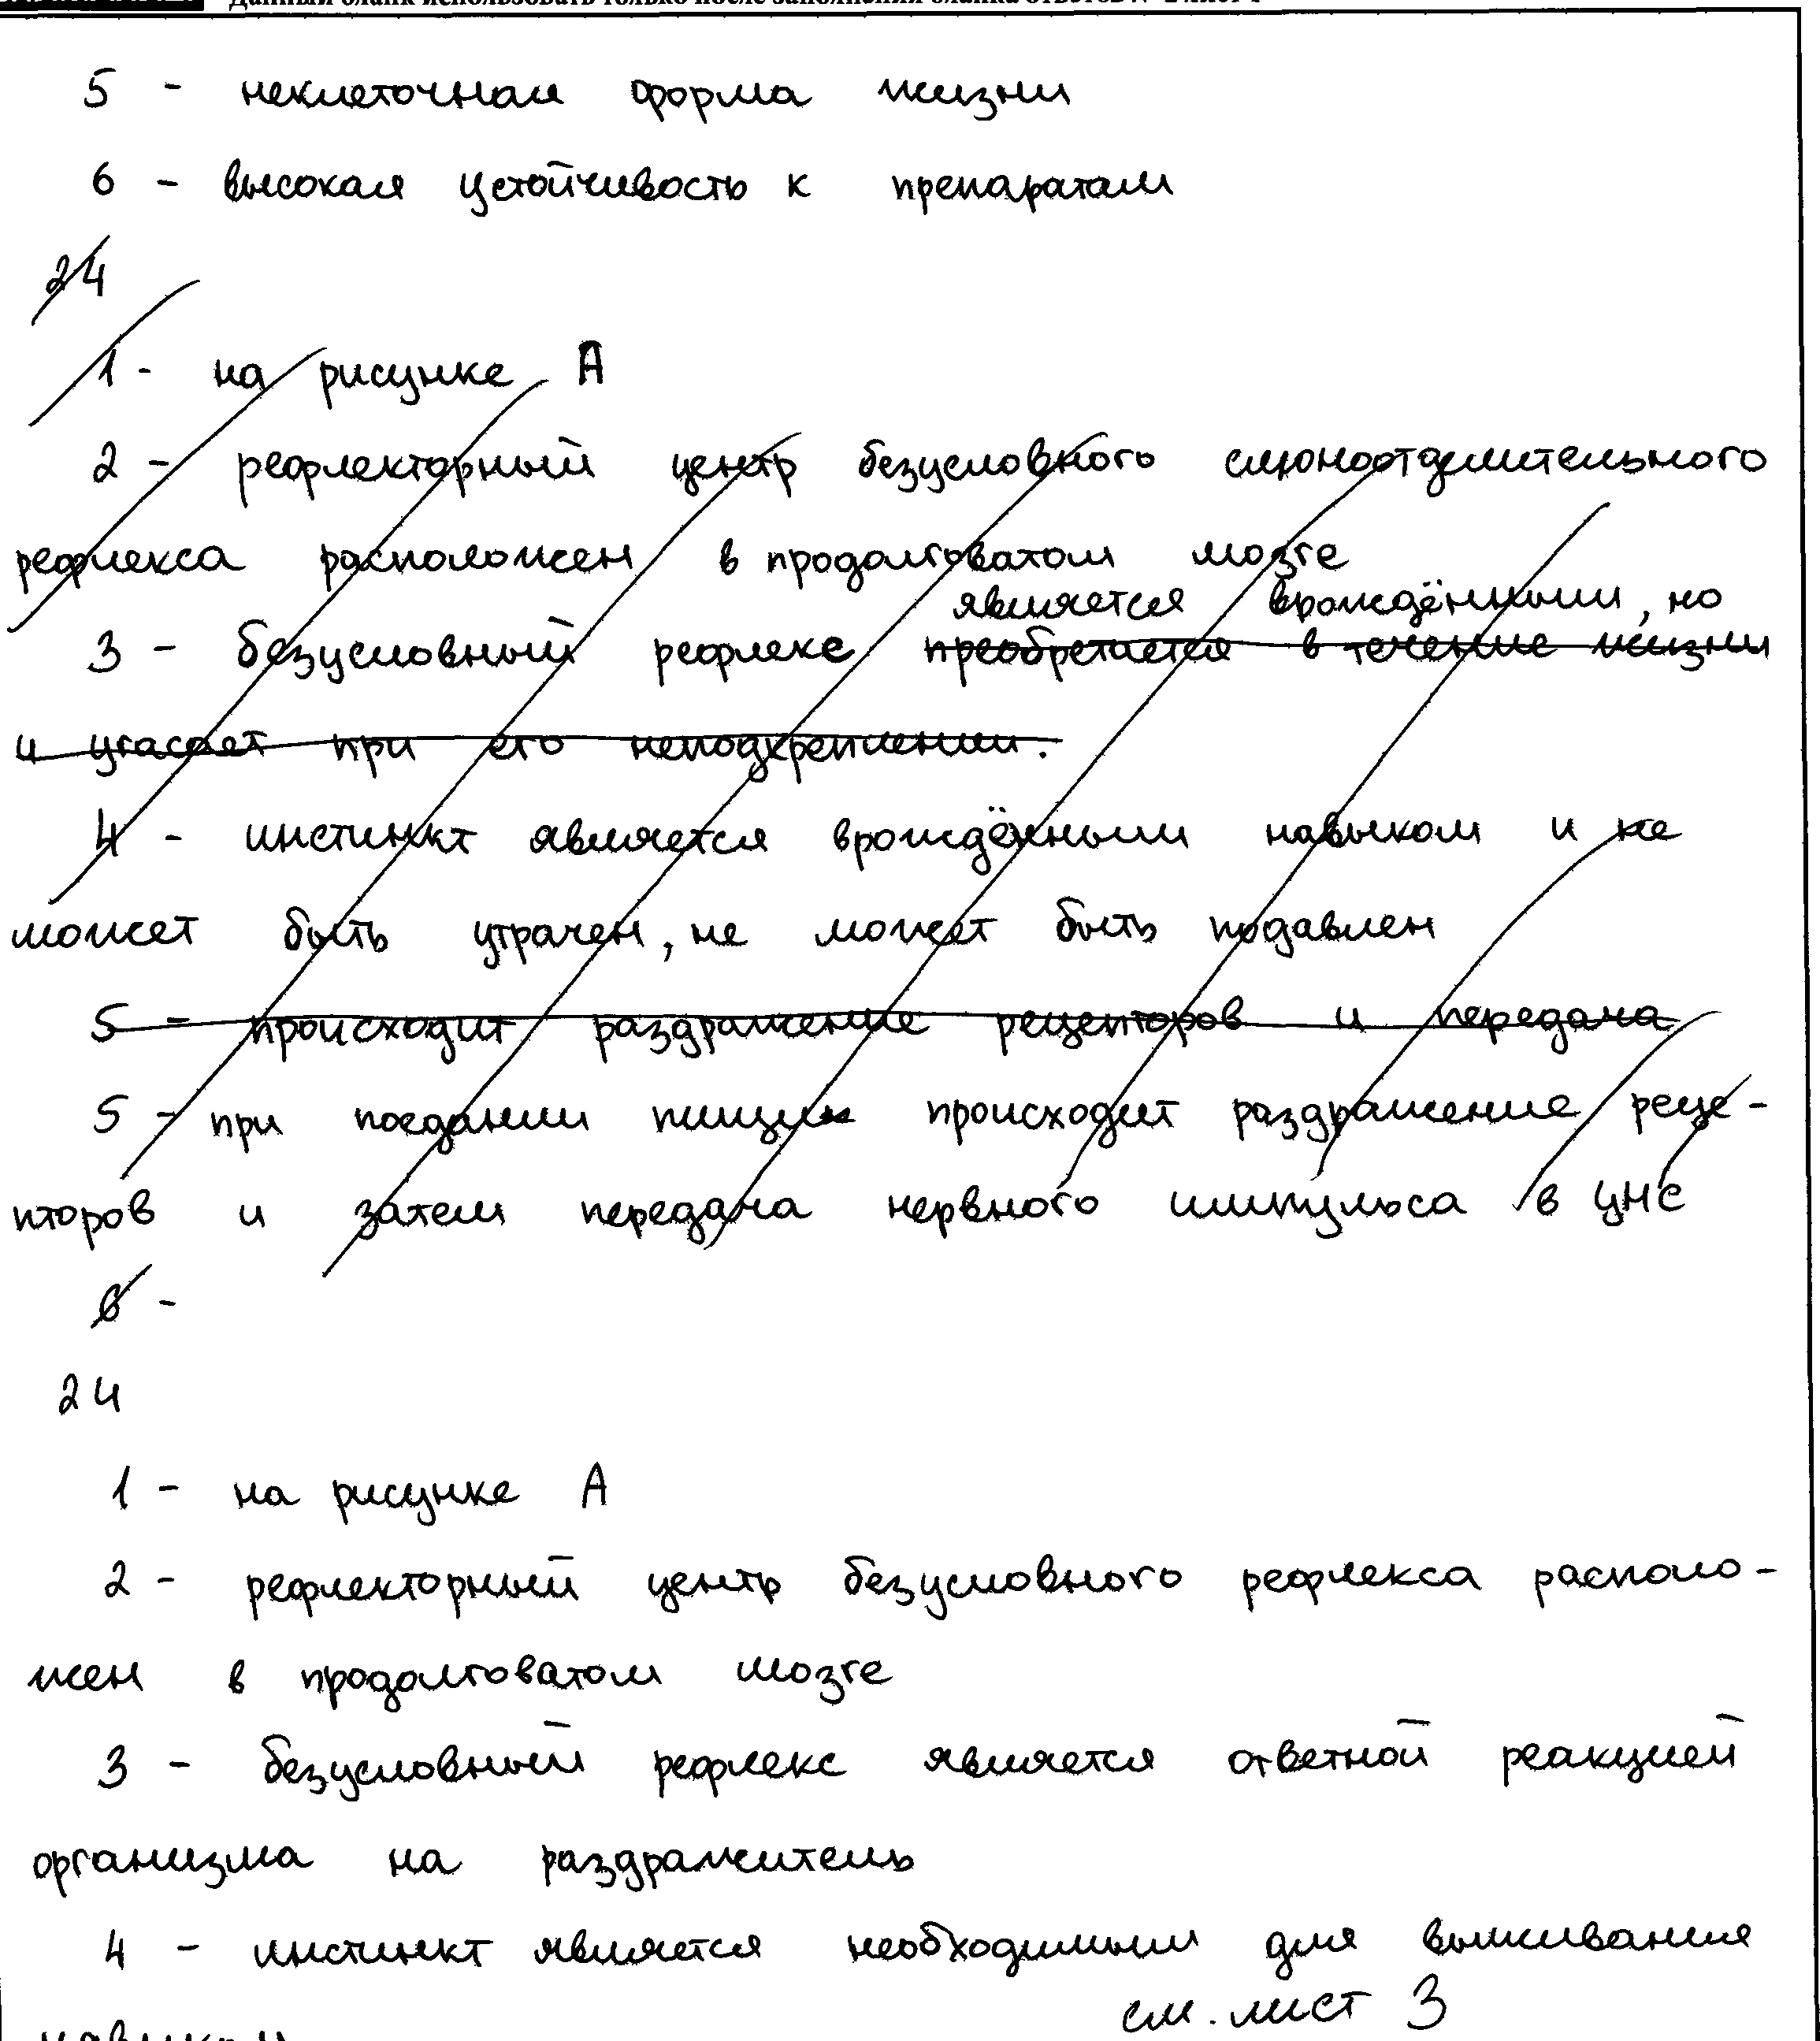 Данный бланк использовать только после заполнения бланка ответов № 2 лист 1
5 - неклеточная форма жизни
6 - высокая устойчивость к препаратам
24
1 - на рисунке А
2 - рефлекторный центр безусловного слюноотделительного
рефлекса расположен в продолговатом мозге
является врождённым, но
3 - безусловный рефлекс преобретается в течение жизни
и угасает при его неподкреплении.
4 - инстинкт является врождённым навыком и не
может быть утрачен, не может быть подавлен
5 - происходит раздражение рецепторов и передача
5 - при поедании пищи происходит раздражение реце-
пторов и затем передача нервного импульса в ЦНС
6 -
24
1 - на рисунке А
2 - рефлекторный центр безусловного рефлекса располо-
жен в продолговатом мозге
3 - безусловный рефлекс является ответной реакцией
организма на раздражитель
4 - инстинкт является необходимым для выживания
см. лист 3
навыком